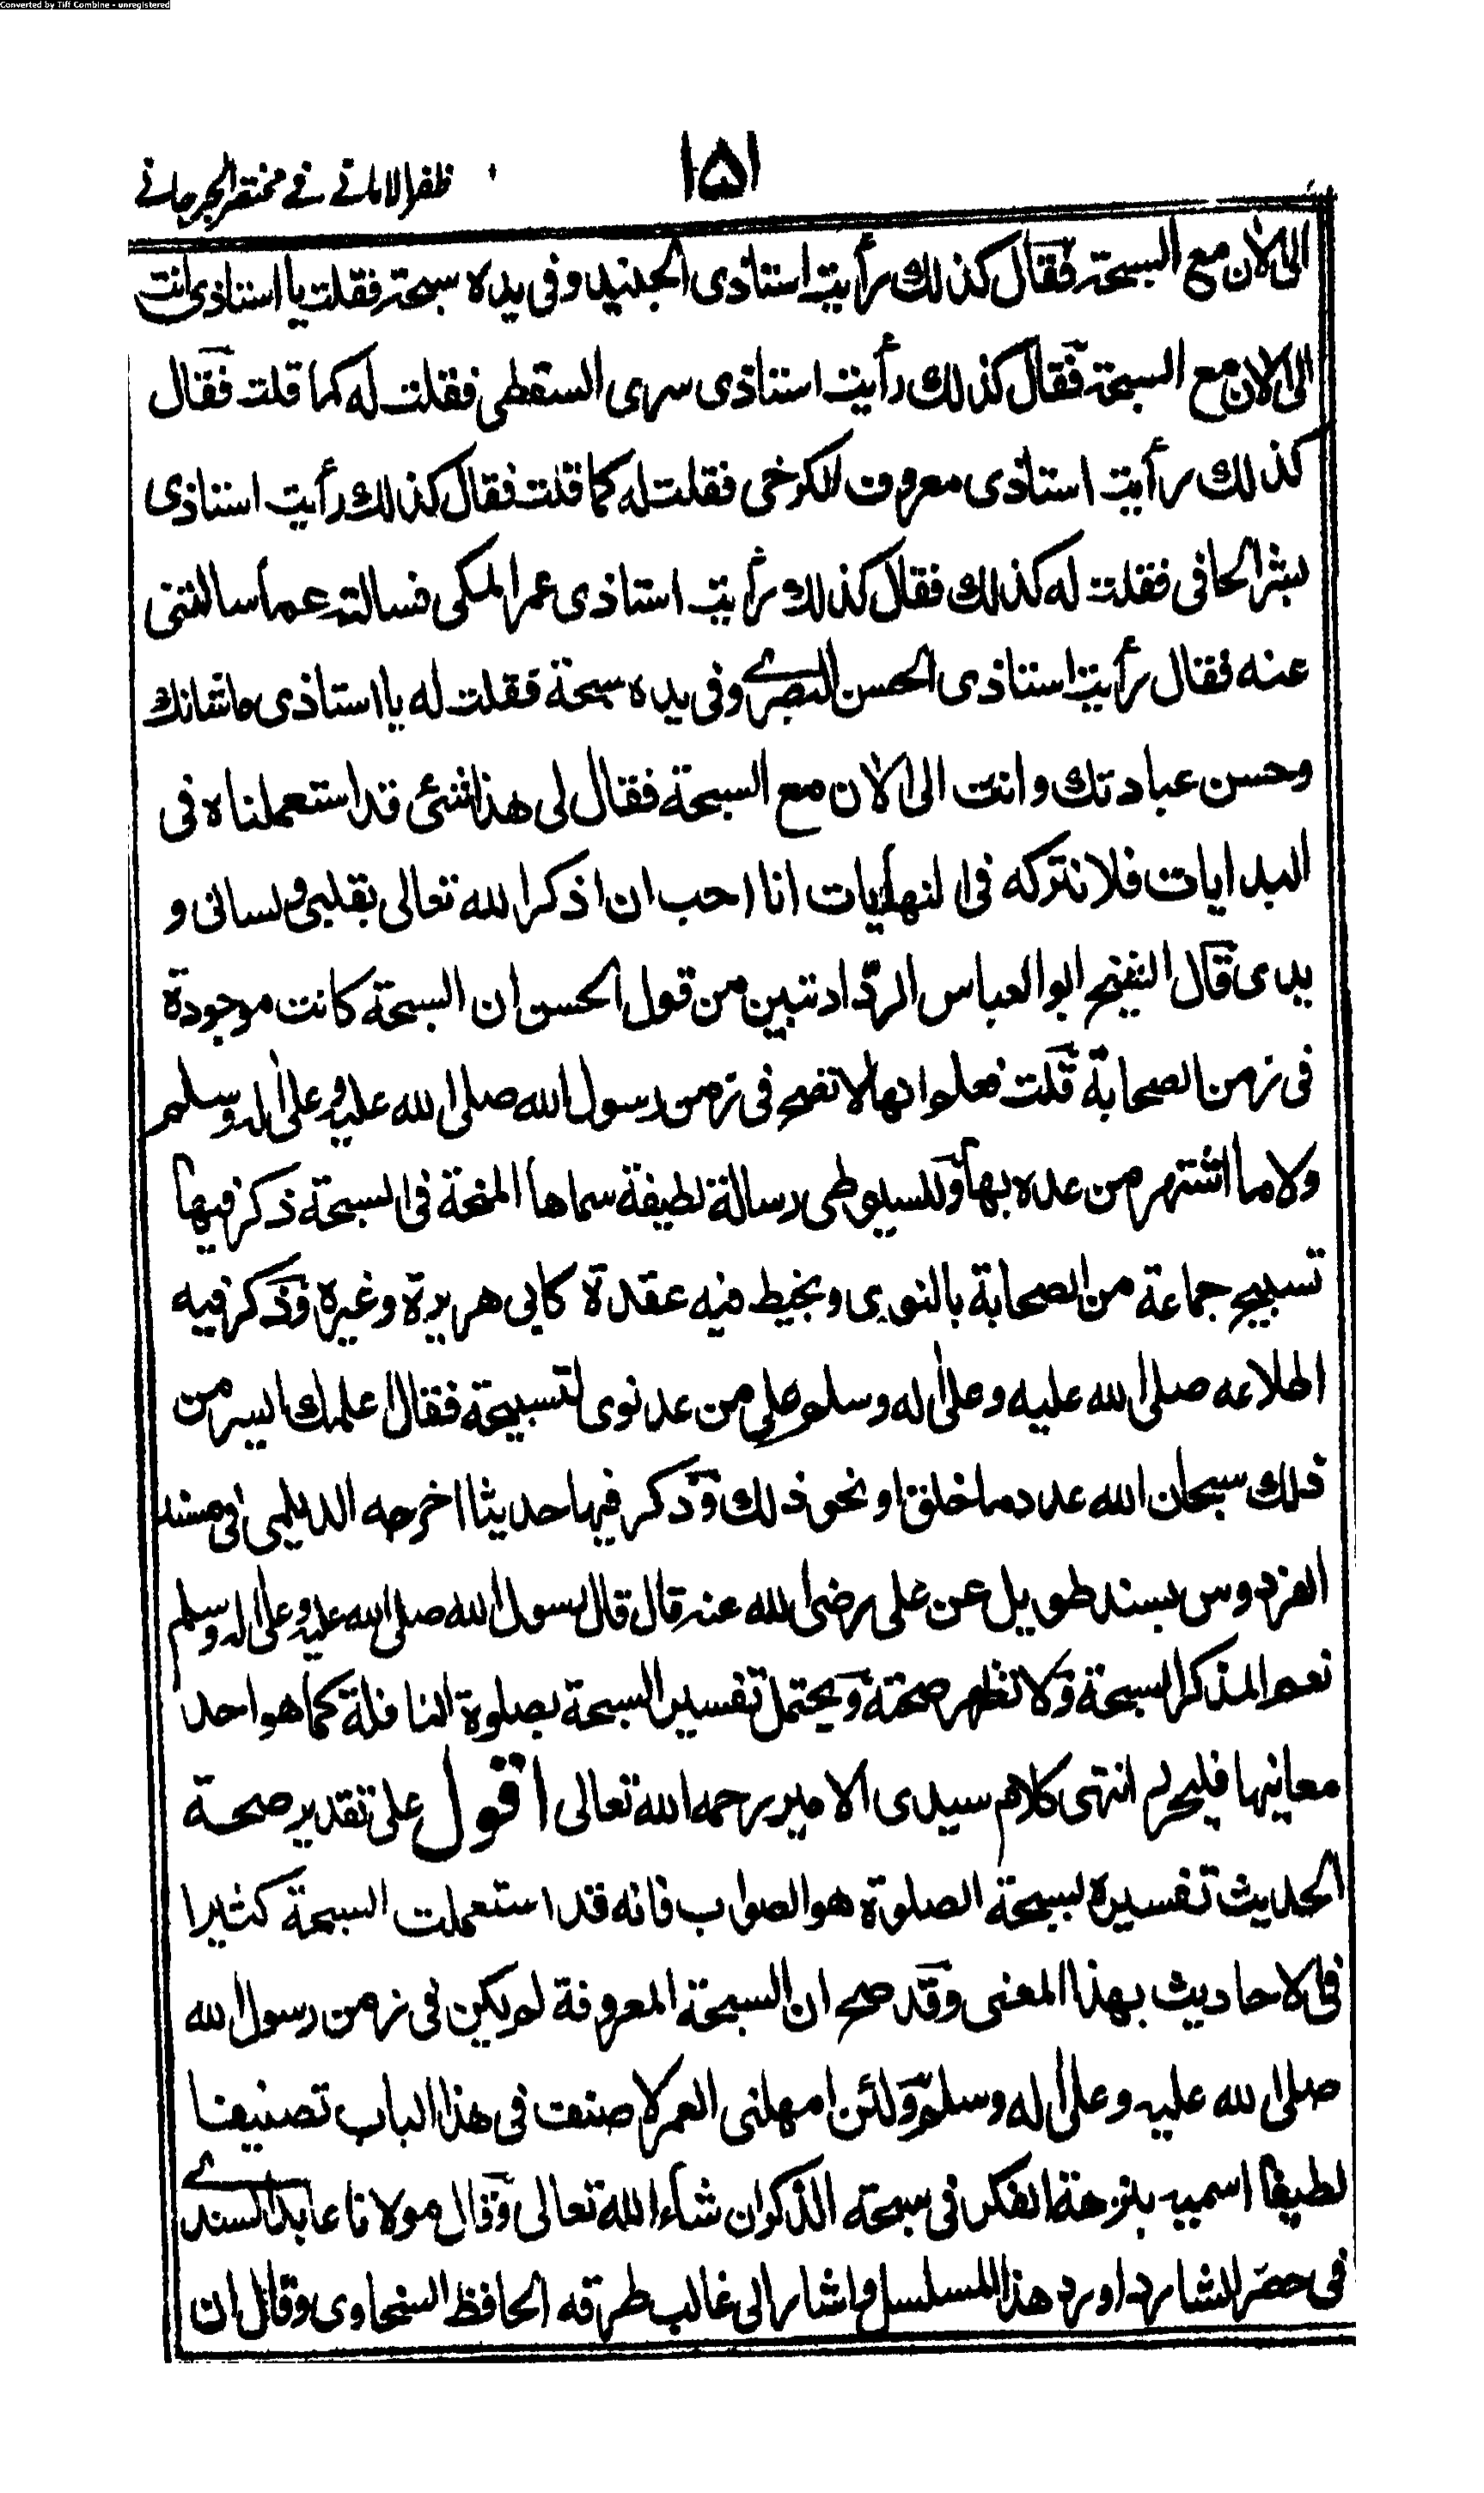 Converted by Tiff Combine - unregistered
١٥١
ظفر الاماني في مختصر الجرجاني
الى الان مع السبحة فقال كذلك رأيت استاذى الجنيد وفى يده سبحة فقلت يا استاذى انت
الى الان مع السبحة فقال كذلك رأيت استاذى سرى السقطى فقلت له كما قلت فقال
كذلك رأيت استاذى معروف الكرخى فقلت له كما قلت فقال كذلك رأيت استاذى
بشر الحافى فقلت له كذلك فقال كذلك رأيت استاذى عمر المكى فسالته عما سالتنى
عنه فقال رأيت استاذى الحسن البصرے وفى يده سبحة فقلت له يا استاذى ما شانك
وحسن عبادتك وانت الى الان مع السبحة فقال لى هذا شئ قد استعملناه فى
البدايات فلا نتركه فى النهايات انا احب ان اذكر الله تعالى بقلبى ولسانى و
يدى قال الشيخ ابو العباس الردّاد تبين من قول الحسن ان السبحة كانت موجودة
فى زمن الصحابة قلت فعلوا بها لا تصح فى زمن رسول الله صلى الله عليه وعلى اله وسلم
ولا ما اشتهر من عده بها وللسيوطى رسالة لطيفة سماها المنحة فى السبحة ذكر فيها
تسبيح جماعة من الصحابة بالنوى وبخيط فيه عقدة كابى هريرة وغيره وذكر فيه
اطلاعه صلى الله عليه وعلى اله وسلم على من عد نوى لتسبيحة فقال اعلمك ايسر من
ذلك سبحان الله عدد ما خلق او نحو ذلك وذكر فيها حديثا اخرجه الديلمى فى مسند
الفردوس بسند طويل عن على رضى الله عنه قال قال رسول الله صلى الله عليه وعلى اله وسلم
نعم المذكر السبحة ولا تظهر صحته ويحتمل تفسير السبحة بصلوة النافلة كما هو احد
معانيها فليحرر انتهى كلام سيدى الامير رحمه الله تعالى اقول على تقدير صحة
الحديث تفسيره بسبحة الصلوة هو الصواب فانه قد استعملت السبحة كثيرا
فى الاحاديث بهذا المعنى وقد صح ان السبحة المعروفة لم يكن فى زمن رسول الله
صلى الله عليه وعلى اله وسلم ولئن امهلنى العمر لاصنف فى هذا الباب تصنيفا
لطيفا اسميه بنزهة الفكر فى سبحة الذكر ان شاء الله تعالى وقال مولانا عابد السندے
فى حصر الشارد اورد هذا المسلسل واشار الى غالب طرقه الحافظ السخاوى وقال ان